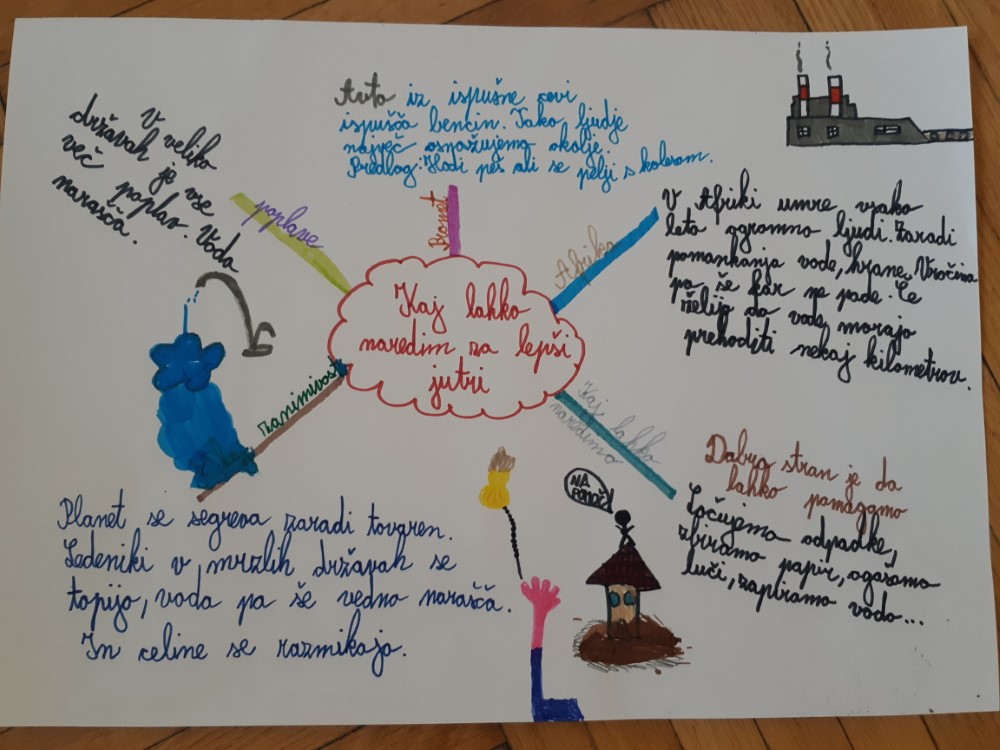 Kaj lahko
naredim za lepši
jutri
poplave
V veliko
državah je vse
več poplav. Voda
narašča.
Promet
Avto iz ispušne cevi
ispušča bencin. Tako ljudje
največ osnažujemo okolje.
Predlog: Hodi peš ali se pelji s kolesom.
Afrika
V Afriki umre vsako
leto ogromno ljudi. Zaradi
pomankanja vode, hrane. Vročina
pa še kar ne pade. Če
želijo do vode, morajo
prehoditi nekaj kilometrov.
Kaj lahko
naredimo
Dobra stran je da
lahko pomagamo
Ločujemo odpadke,
zbiramo papir, ugasamo
luči, zapiramo vodo...
NA
POMOČ!
zanimivost
Planet se segreva zaradi tovaren.
Ledeniki v mrzlih državah se
topijo, voda pa še vedno narašča.
In celine se razmikajo.